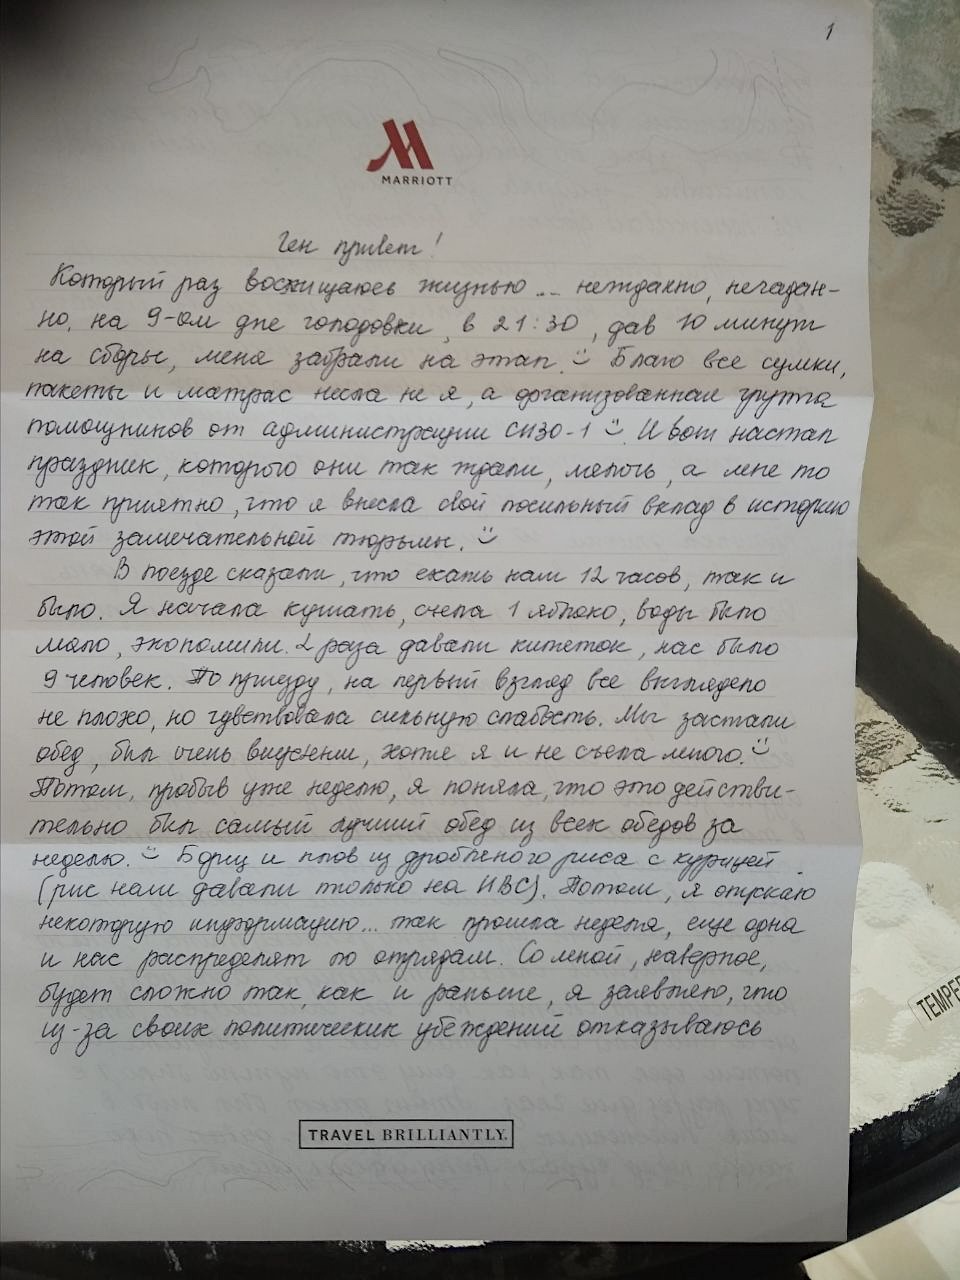 1
MARRIOTT
Ген привет!
Который раз восхищаюсь жизнью... нежданно, негадан-
но, на 9-ом дне голодовки, в 21:30, дав 10 минут
на сборы, меня забрали на этап. Благо все сумки,
пакеты и матрас несла не я, а организованная группа
помощников от администрации СИЗО-1 И вот настал
праздник, которого они так ждали, мелочь, а мне то
так приятно, что я внесла свой посильный вклад в историю
этой замечательной тюрьмы.
В поезде сказали, что ехать нам 12 часов, так и
было. Я начала кушать, съела 1 яблоко, воды было
мало, экономили. 2 раза давали кипяток, нас было
9 человек. По приезду, на первый взгляд все выглядело
не плохо, но чувствовала сильную слабость. Мы застали
обед, был очень вкусным, хотя я и не съела много.
Потом, пробыв уже неделю, я поняла, что это действи-
тельно был самый лучший обед из всех обедов за
неделю. Борщ и плов из дробленого риса с курицей
(рис нам давали только на ИВС). Потом, я опускаю
некоторую информацию... так прошла неделя, еще одна
и нас распределят по отрядам. Со мной, наверное,
будет сложно так, как и раньше, я заявляю, что
из-за своих политических убеждений отказываюсь
TRAVEL BRILLIANTLY.
TEMPE